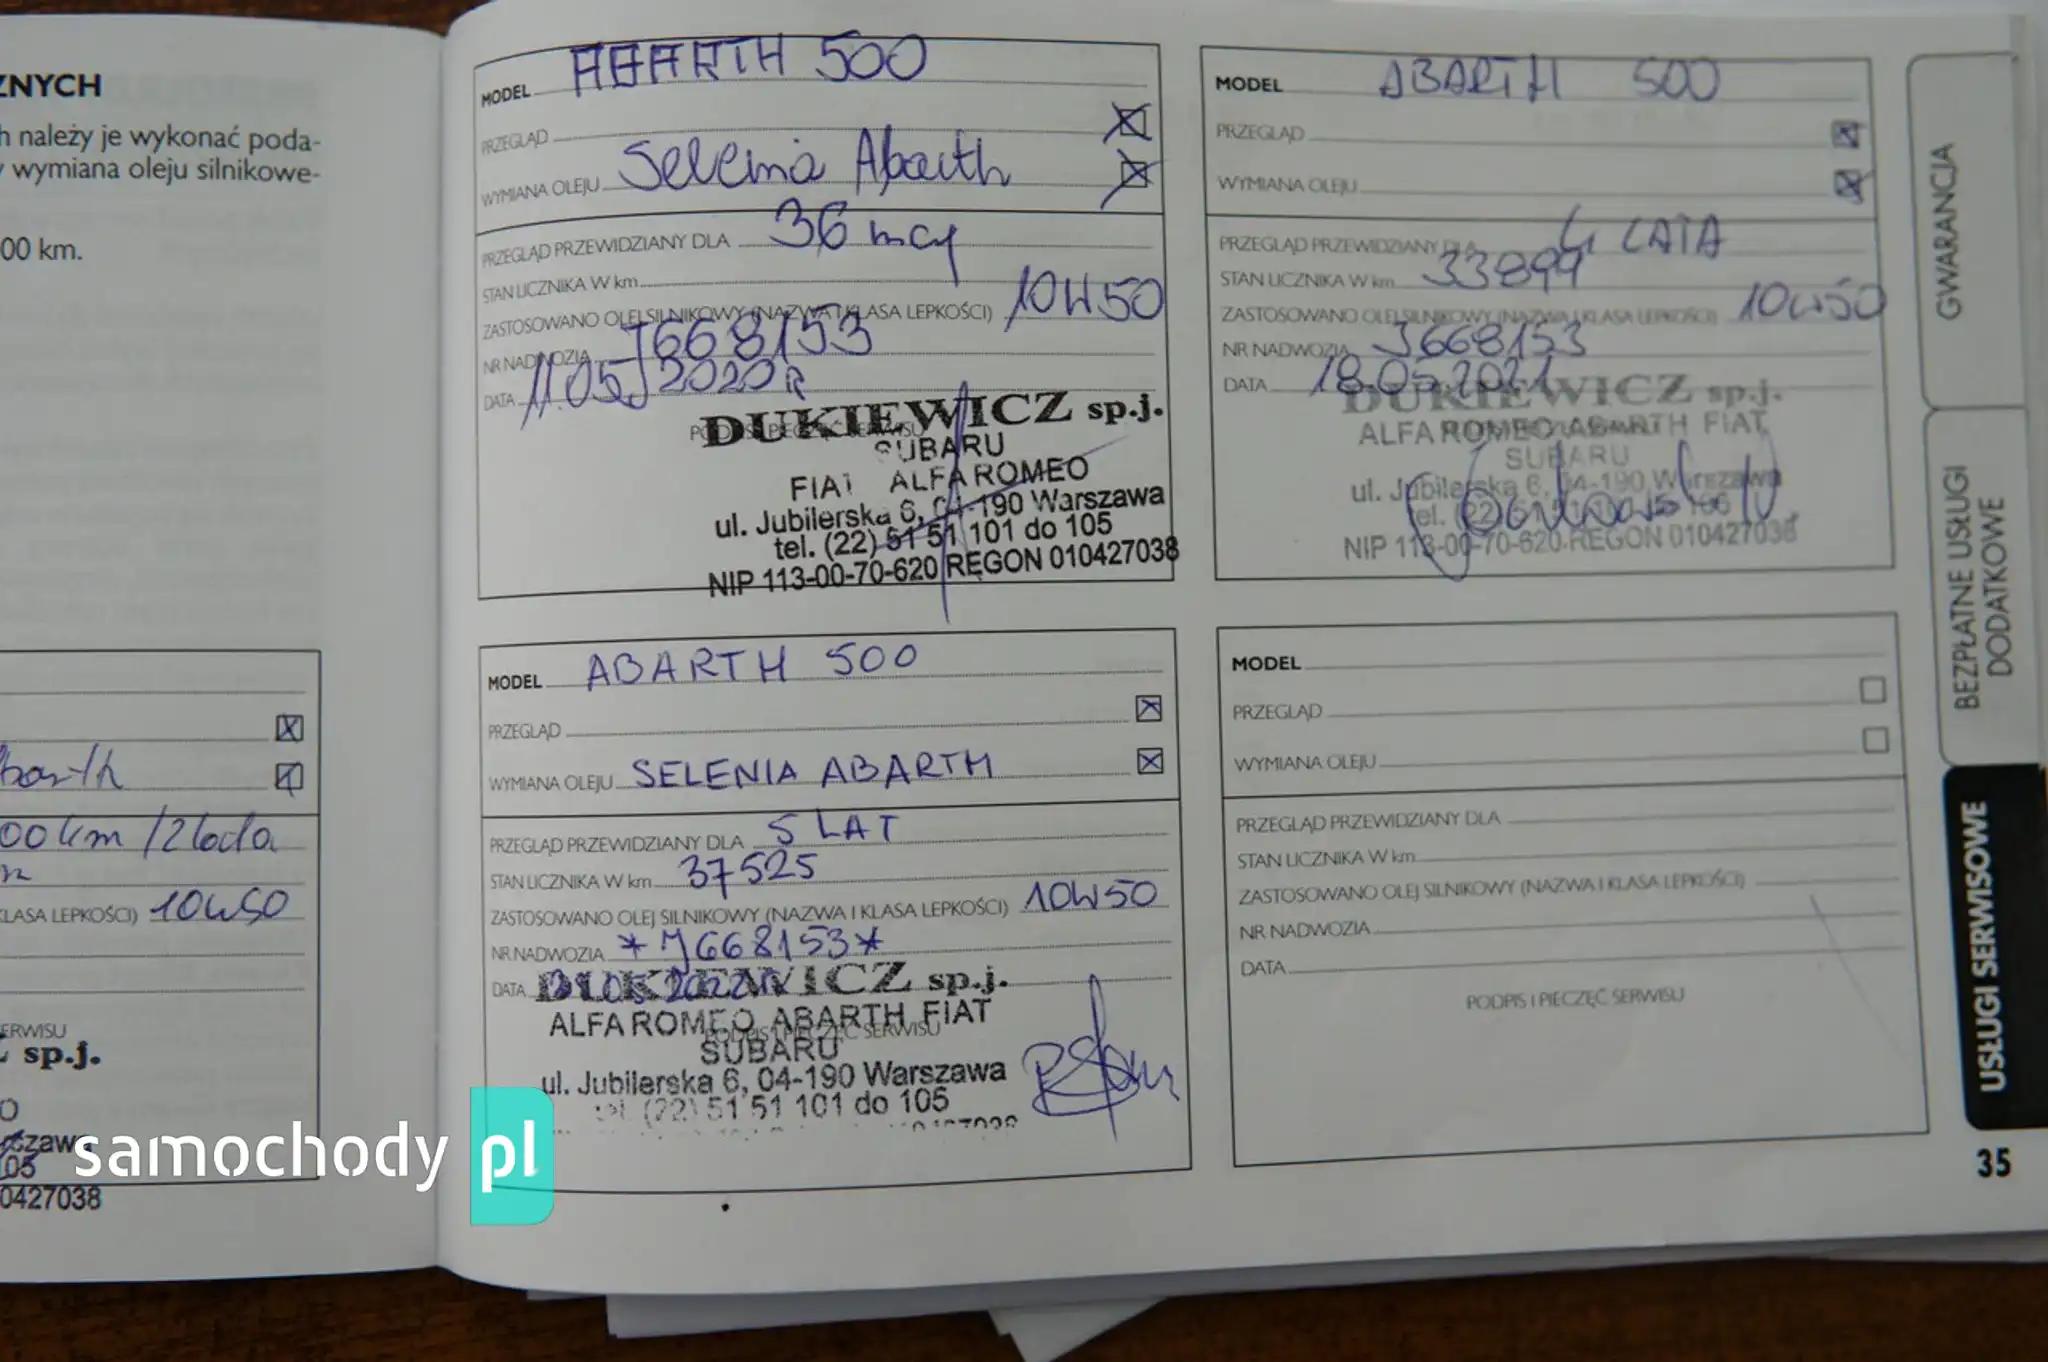 ZNYCH
h należy je wykonać poda-
wymiana oleju silnikowe-
00 km.
barth
00 km / 2 lata
KLASA LEPKOŚCI) 10W50
SERWISU
sp.j.
O
szawa
105
0427038
MODEL ABARTH 500
PRZEGLĄD
WYMIANA OLEJU Selenia Abarth
PRZEGLĄD PRZEWIDZIANY DLA 36 mcy
STAN LICZNIKA W km
ZASTOSOWANO OLEJ SILNIKOWY (NAZWA I KLASA LEPKOŚCI) 10W50
NR NADWOZIA J668153
DATA 11.05.2020 r
PODPIS I PIECZĘĆ SERWISU
DUKIEWICZ sp.j.
SUBARU
FIAT ALFA ROMEO
ul. Jubilerska 6, 04-190 Warszawa
tel. (22) 51 51 101 do 105
NIP 113-00-70-620 REGON 010427038
MODEL ABARTH 500
PRZEGLĄD
WYMIANA OLEJU
PRZEGLĄD PRZEWIDZIANY DLA 4 LATA
STAN LICZNIKA W km 33899
ZASTOSOWANO OLEJ SILNIKOWY (NAZWA I KLASA LEPKOŚCI) 10W50
NR NADWOZIA J668153
DATA 18.05.2021
DUKIEWICZ sp.j.
ALFA ROMEO ABARTH FIAT
SUBARU
ul. Jubilerska 6, 04-190 Warszawa
tel. (22) 51 51
NIP 113-00-70-620 REGON 010427038
MODEL ABARTH 500
PRZEGLĄD
WYMIANA OLEJU SELENIA ABARTH
PRZEGLĄD PRZEWIDZIANY DLA 5 LAT
STAN LICZNIKA W km 37525
ZASTOSOWANO OLEJ SILNIKOWY (NAZWA I KLASA LEPKOŚCI) 10W50
NR NADWOZIA *J668153*
DATA
DUKIEWICZ sp.j.
ALFA ROMEO ABARTH FIAT
PODPIS I PIECZĘĆ SERWISU
SUBARU
ul. Jubilerska 6, 04-190 Warszawa
tel. (22) 51 51 101 do 105
MODEL
PRZEGLĄD
WYMIANA OLEJU
PRZEGLĄD PRZEWIDZIANY DLA
STAN LICZNIKA W km
ZASTOSOWANO OLEJ SILNIKOWY (NAZWA I KLASA LEPKOŚCI)
NR NADWOZIA
DATA
PODPIS I PIECZĘĆ SERWISU
GWARANCJA
BEZPŁATNE USŁUGI
DODATKOWE
USŁUGI SERWISOWE
35
samochody pl